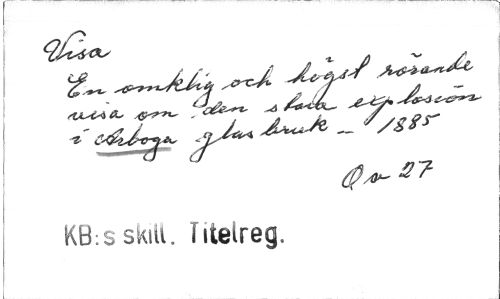 Visa
En omklig och högst rörande
visa om den stora explosion
i Arboga glasbruk – 1885
Qv 27
KB:s skill. Titelreg.